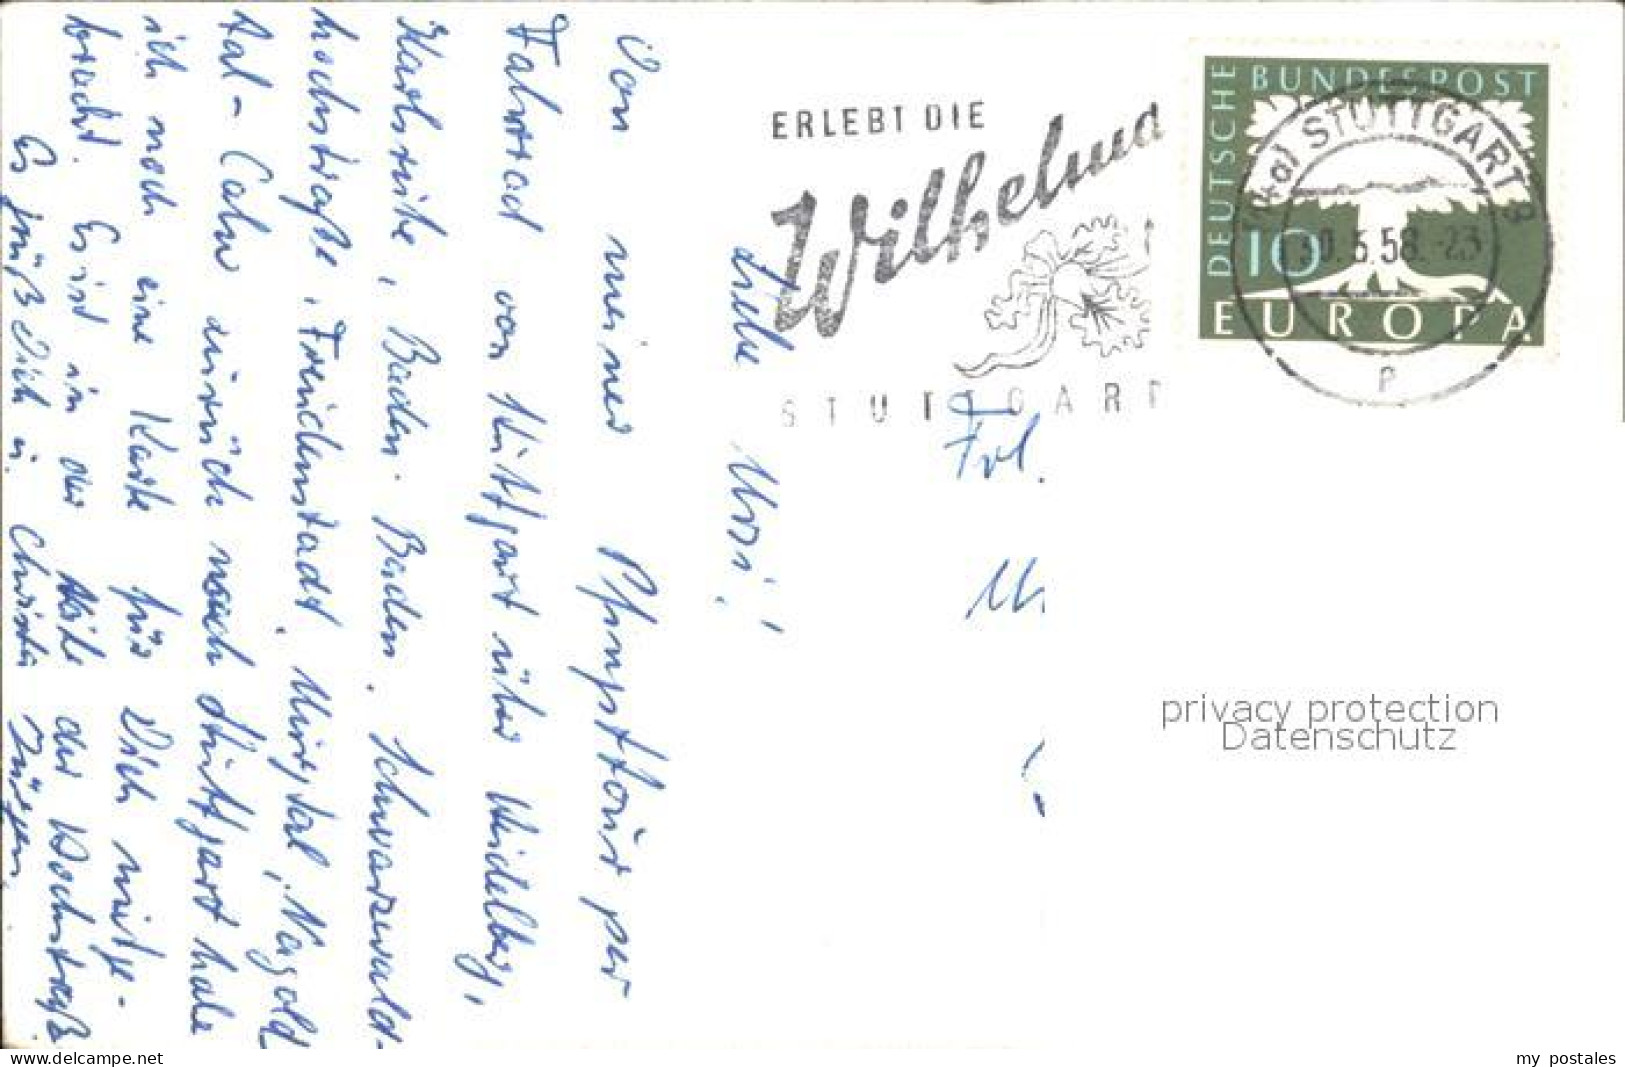 ERLEBT DIE
Wilhelma
STUTTGART
DEUTSCHE BUNDESPOST
10
EUROPA
STUTTGART 9
30.5.58.-23
P
Frl.
privacy protection
Datenschutz
Liebe Ursi!,
Von meiner Pfingsttour per
Fahrrad von Stuttgart über Heidelberg,
Karlsruhe, Baden-Baden, Schwarzwald-
hochstraße, Freudenstadt, Murgtal, Nagold
tal - Calw zurück nach Stuttgart habe
ich noch eine Karte für Dich mitge-
bracht. Es ist in der Nähe der Hochstraße
Es grüßt Dich u. Christa Jürgen.
www.ansichtskartenversand.com
my postales